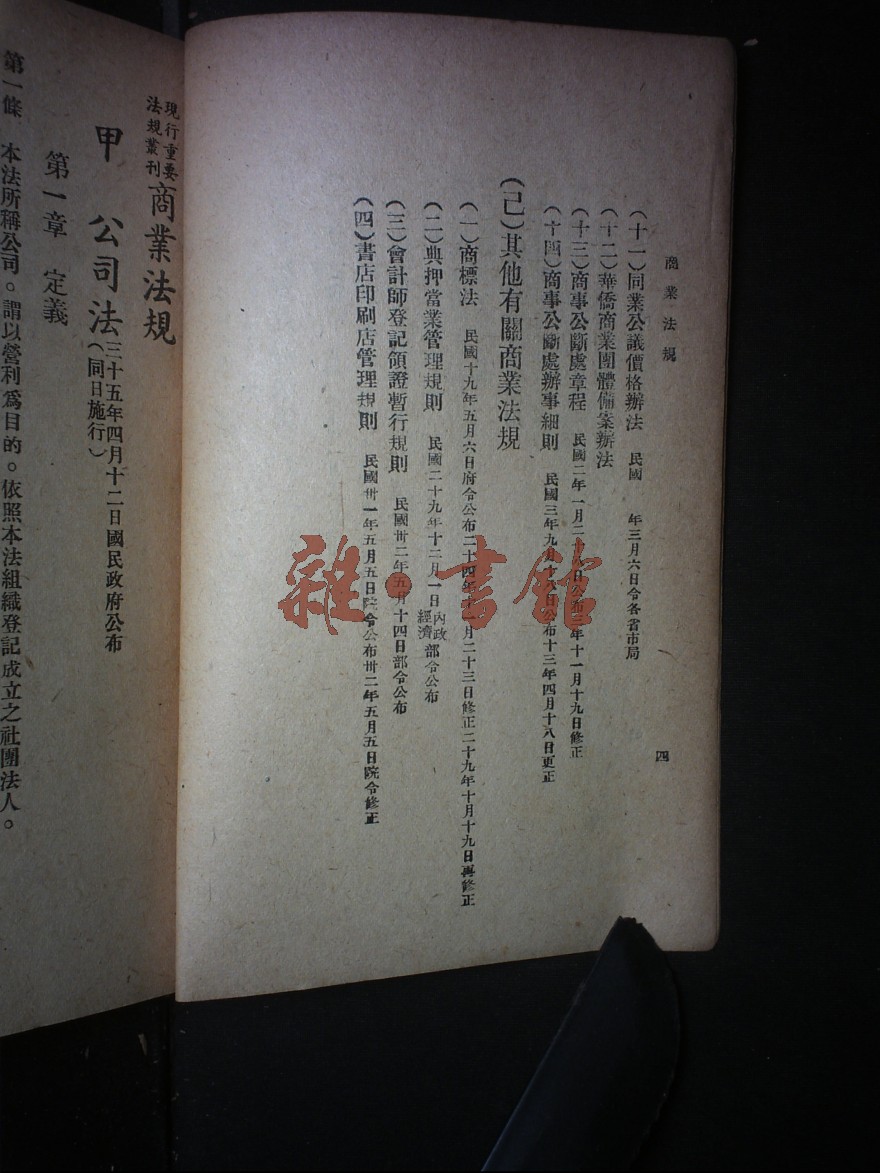 商業法規
四
(十一)同業公議價格辦法 民國 年三月六日令各省市局
(十二)華僑商業團體備案辦法
(十三)商事公斷處章程 民國二年一月二十八日公布三年十一月十九日修正
(十四)商事公斷處辦事細則 民國三年九月十八日公布十三年四月十八日更正
(己)其他有關商業法規
(一)商標法 民國十九年五月六日府令公布二十四年十一月二十三日修正二十九年十月十九日再修正
(二)典押當業管理規則 民國二十九年十二月一日內政經濟部令公布
(三)會計師登記領證暫行規則 民國卅二年五月十四日部令公布
(四)書店印刷店管理規則 民國卅一年五月五日院令公布卅二年五月五日院令修正
現行重要法規叢刊 商業法規
甲 公司法 三十五年四月十二日國民政府公布(同日施行)
第一章 定義
第一條 本法所稱公司。謂以營利爲目的。依照本法組織登記成立之社團法人。
雜·書館